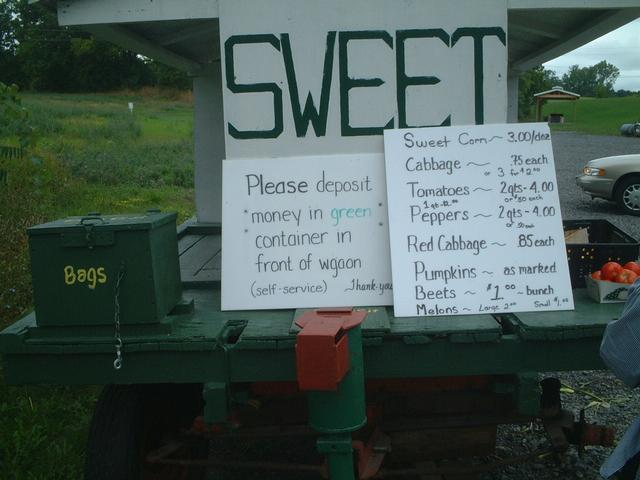 SWEET
Please deposit
money in green
container in
front of wgaon
(self-service) Thank-you
Sweet Corn ~ 3.00/doz
Cabbage ~ 75 each
or 3 for $2.00
Tomatoes ~ 2qts - 4.00
1 qt-
or .50 each
Peppers ~ 2qts - 4.00
or .50 ea
Red Cabbage ~ 85 each
Pumpkins ~ as marked
Beets ~ $1.00 ~ bunch
Melons ~ Large 2.00 Small $1.00
Bags